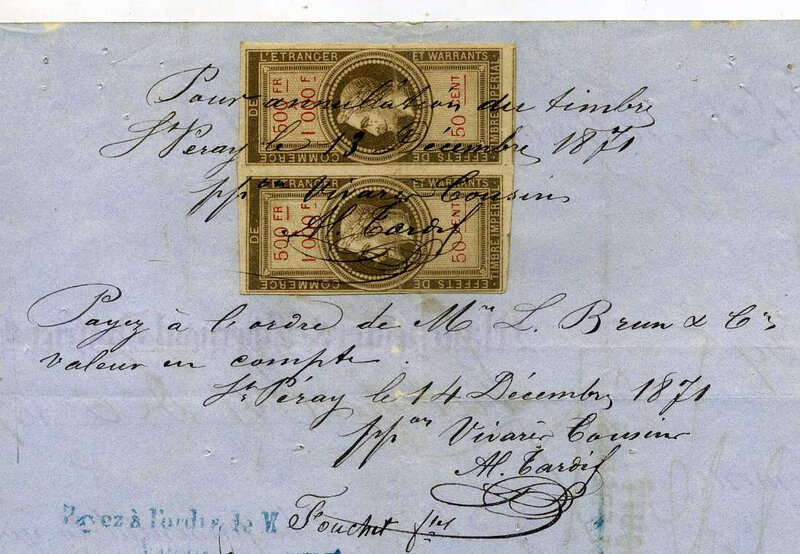 L'ETRANGER ET WARRANTS
DE
500 FR
1 000 F
50 CENT
TIMBRE IMPERIAL
COMMERCE EFFETS DE
Pour annullation du timbre
St Péray le 13 Décembre 1871
ppon Vivarès Cousins
Al. Tardif
L'ETRANGER ET WARRANTS
DE
500 FR
1 000 F
50 CENT
TIMBRE IMPERIAL
COMMERCE EFFETS DE
Payez à l'ordre de Mrs L. Brun & Cie
valeur en compte.
St Péray le 14 Décembre 1871
ppon Vivarès Cousins
Al. Tardif
Payez à l'ordre de M Fouchet